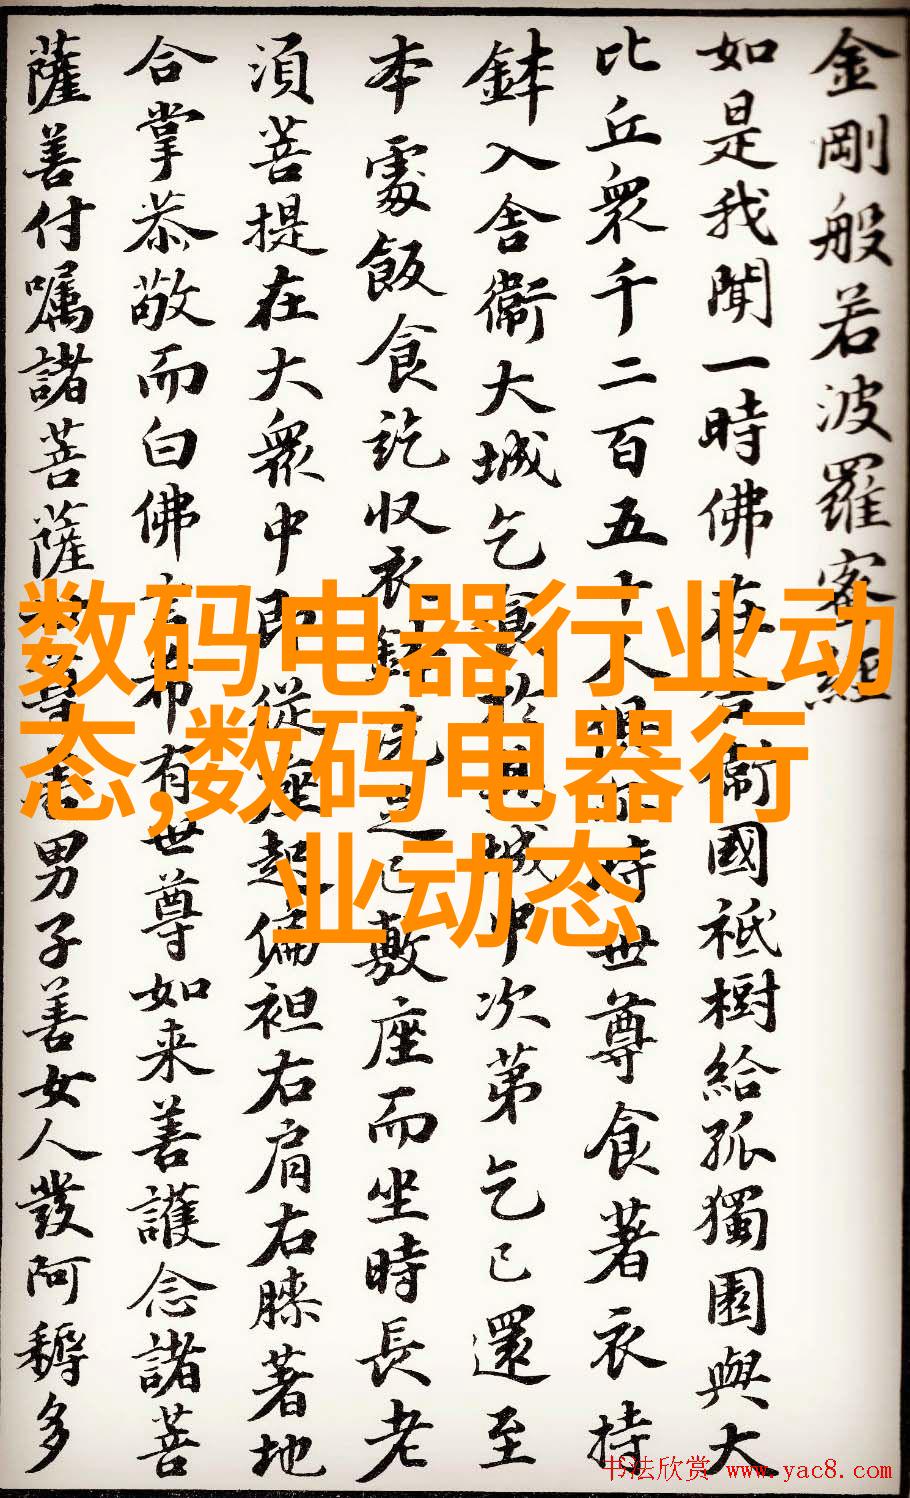 金剛般若波羅蜜經
如是我聞一時佛在舍衛國祇樹給孤獨園與大
比丘衆千二百五十人俱爾時世尊食著衣持
鉢入舍衛大城乞食於其城中次第乞已還至
本處飯食訖収衣鉢洗足已敷座而坐時長老
須菩提在大衆中即從座起偏袒右肩右膝著地
合掌恭敬而白佛言希有世尊如来善護念諸菩
薩善付嘱諸菩薩世尊善男子善女人發阿耨多
数码电器行业动
态,数码电器行
业动态
书法欣赏 www.yac8.com